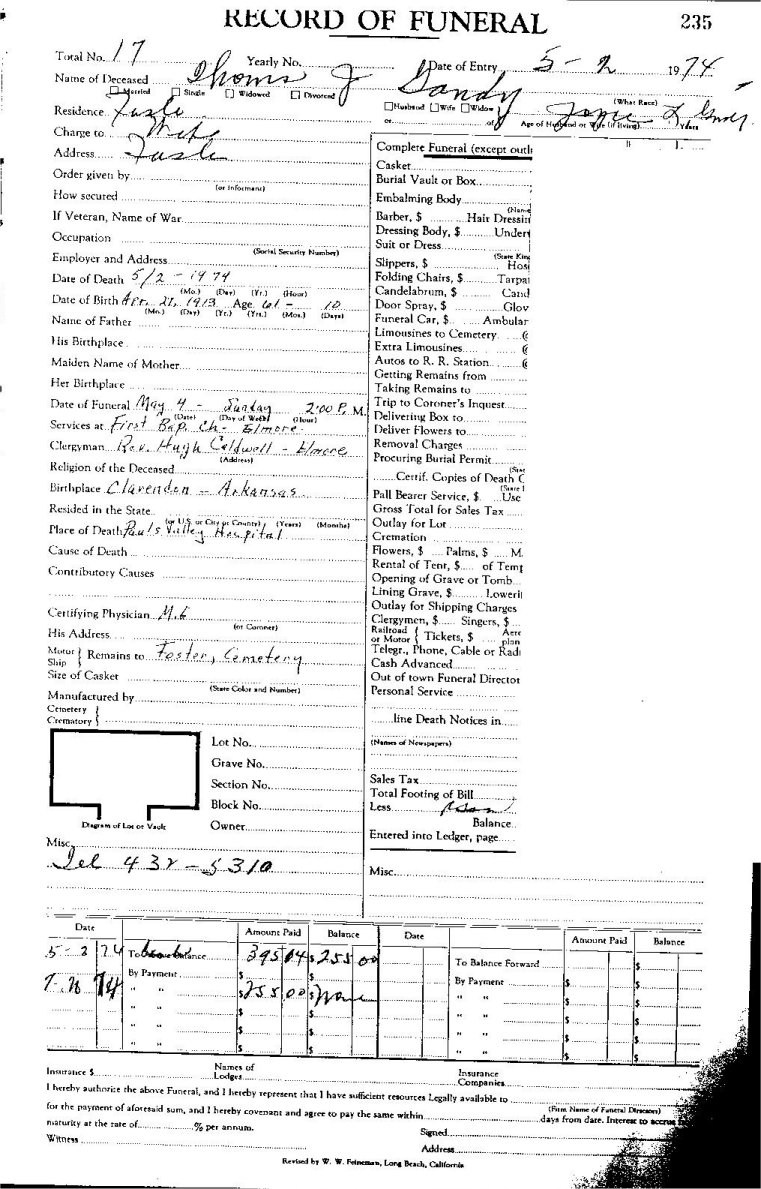 RECORD OF FUNERAL 235
Total No. 17 Yearly No. Date of Entry 5 - 2 1974
Name of Deceased Thomas J Gandy
Married Single Widowed Divorced Husband Wife Widow (What Race)
Residence or of Age of Husband or Wife (if living) Years
Charge to Wife
Address
Order given by
(or informant)
How secured
If Veteran, Name of War
Occupation
(Social Security Number)
Employer and Address
Date of Death 5/2 - 1974
(Mo.) (Day) (Yr.) (Hour)
Date of Birth Apr. 21, 1913 Age 61 - 10
(Mo.) (Day) (Yr.) (Yrs.) (Mos.) (Days)
Name of Father
His Birthplace
Maiden Name of Mother
Her Birthplace
Date of Funeral May 4 - Sunday 2:00 P. M.
(Date) (Day of Week) (Hour)
Services at First Bap. Ch - Elmore
Clergyman Rev. Hugh Caldwell - Elmore
(Address)
Religion of the Deceased
Birthplace Clarenden - Arkansas
Resided in the State
(or U.S. or City or County) (Years) (Months)
Place of Death Paul's Valley Hospital
Cause of Death
Contributory Causes
Certifying Physician M.E
(or Coroner)
His Address
Motor Ship } Remains to Foster, Cemetery
Size of Casket
(State Color and Number)
Manufactured by
Cemetery
Crematory }
Lot No.
Grave No.
Section No.
Block No.
Diagram of Lot or Vault Owner
Misc.
Tel 432-5310
Complete Funeral (except outl
Casket
Burial Vault or Box
Embalming Body
(Name
Barber, $ Hair Dressin
Dressing Body, $ Under
Suit or Dress
(State Kind
Slippers, $ Hosi
Folding Chairs, $ Tarpa
Candelabrum, $ Cand
Door Spray, $ Glov
Funeral Car, $ Ambular
Limousines to Cemetery @
Extra Limousines @
Autos to R. R. Station @
Getting Remains from
Taking Remains to
Trip to Coroner's Inquest
Delivering Box to
Deliver Flowers to
Removal Charges
Procuring Burial Permit
(State
Certif. Copies of Death C
(State
Pall Bearer Service, $ Use
Gross Total for Sales Tax
Outlay for Lot
Cremation
Flowers, $ Palms, $ M
Rental of Tent, $ of Temp
Opening of Grave or Tomb
Lining Grave, $ Loweri
Outlay for Shipping Charges
Clergymen, $ Singers, $
Railroad or Motor { Tickets, $ Aero plan
Telegr., Phone, Cable or Radi
Cash Advanced
Out of town Funeral Director
Personal Service
line Death Notices in
(Names of Newspapers)
Sales Tax
Total Footing of Bill
Less
Balance
Entered into Ledger, page
Misc.
Date Amount Paid Balance Date Amount Paid Balance
5-2 74 To Balance 395 04 $255 00 To Balance Forward $
By Payment $ $ By Payment $ $
74 " " $255 00 $None " " $ $
" " $ $ " " $ $
" " $ $ " " $ $
" " $ $ " " $ $
Insurance $ Names of Lodges Insurance Companies
I hereby authorize the above Funeral, and I hereby represent that I have sufficient resources Legally available to
(Firm Name of Funeral Directors)
for the payment of aforesaid sum, and I hereby covenant and agree to pay the same within days from date. Interest to accrue
maturity at the rate of % per annum.
Signed
Witness
Address
Revised by W. W. Feineman, Long Beach, California